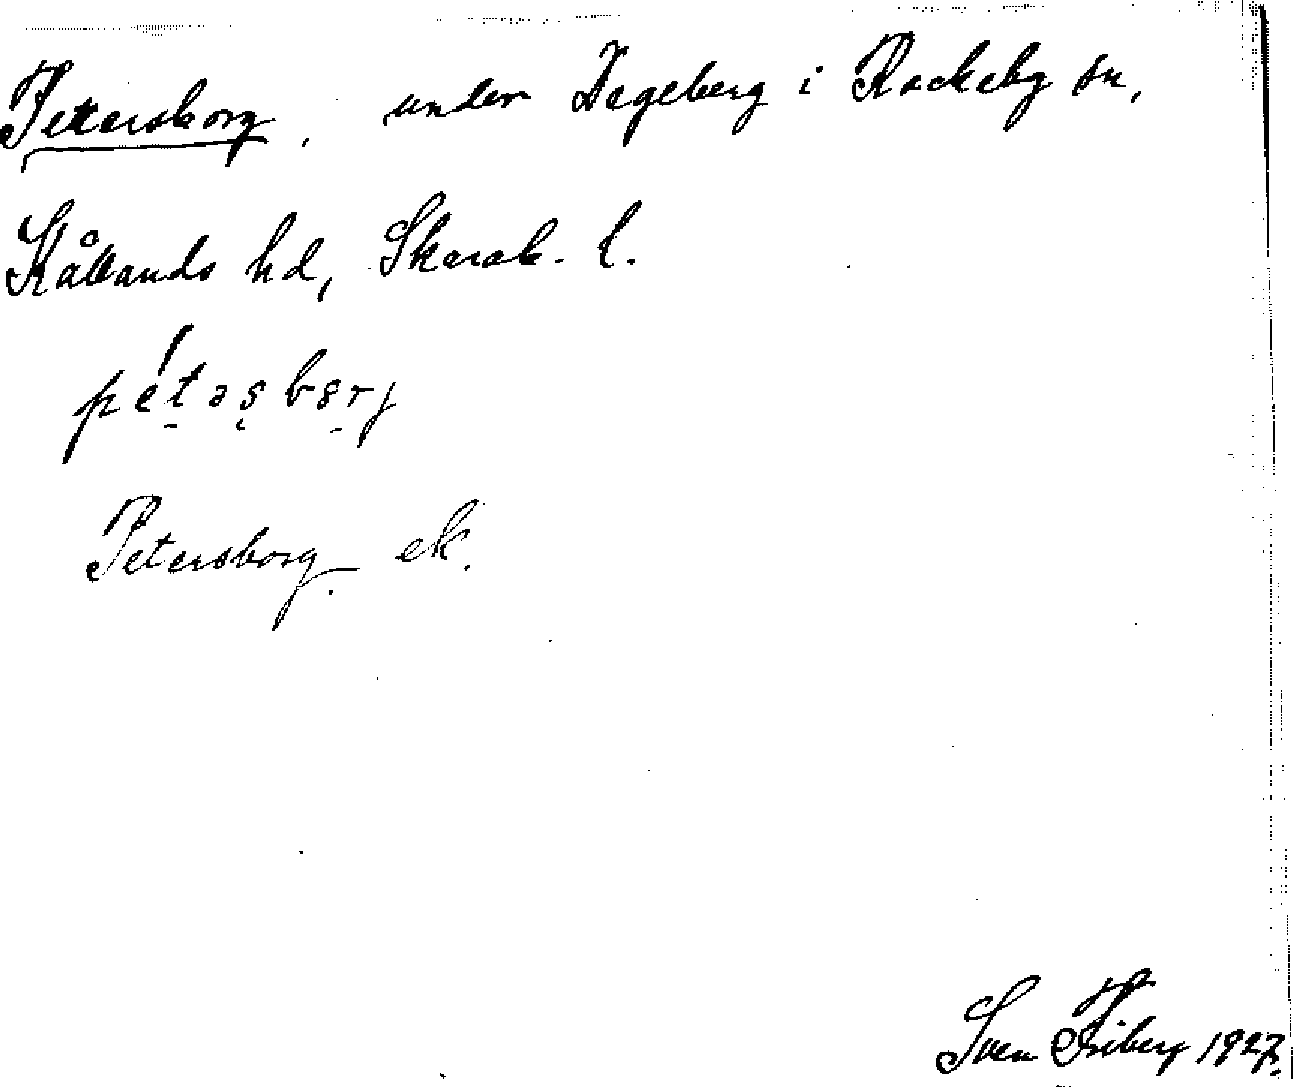 Petersborg, under Dageberg i Rackeby sn,
Kållands hd, Skarab. l.
pétəs̨bo̱rj
Petersborg ek.
Sven Friberg 1927.